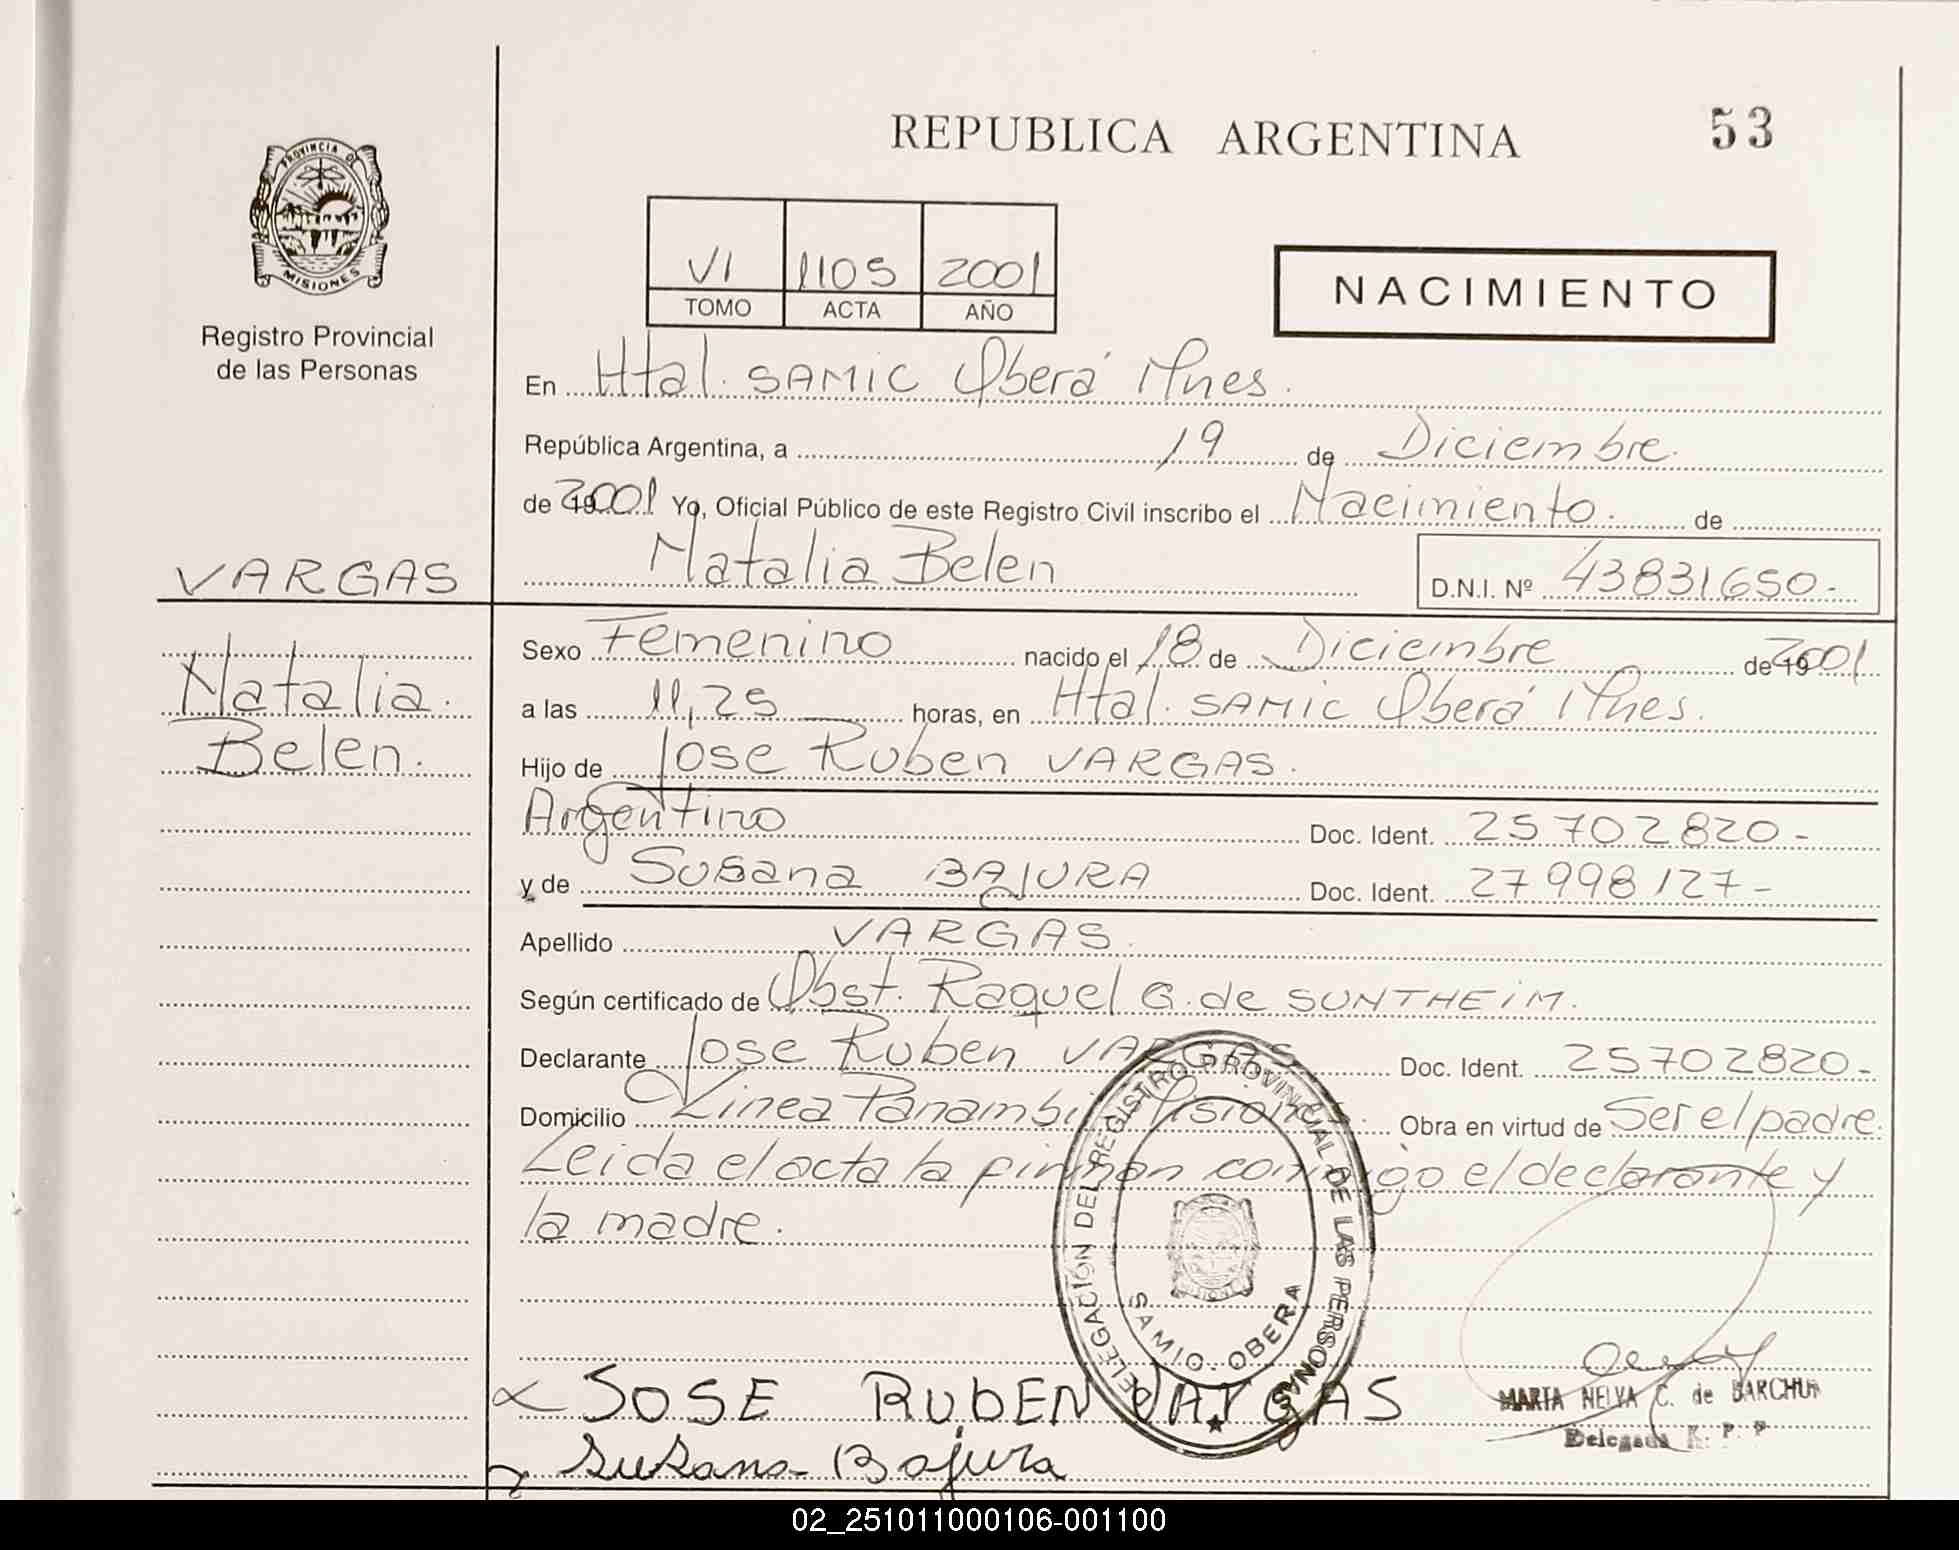 REPUBLICA ARGENTINA
53
PROVINCIA DE
MISIONES
Registro Provincial
de las Personas
VI 1105 2001
TOMO ACTA AÑO
NACIMIENTO
En Htal. SAMIC Oberá Mnes.
República Argentina, a 19 de Diciembre
de 2001 Yo, Oficial Público de este Registro Civil inscribo el Nacimiento. de
Natalia Belen D.N.I. Nº 43831650.-
VARGAS
Natalia.
Belen.
Sexo Femenino nacido el 18 de Diciembre de 19 2001
a las 11,25 horas, en Htal. SAMIC Oberá Mnes.
Hijo de Jose Ruben VARGAS.
Argentino Doc. Ident. 25702820-
y de Susana BAJURA Doc. Ident. 27998127-
Apellido VARGAS.
Según certificado de Obst. Raquel G. de SUNTHEIM.
Declarante Jose Ruben VARGAS Doc. Ident. 25702820-
Domicilio Linea Panambi Misiones. Obra en virtud de Ser el padre.
Leida el acta la firman conmigo el declarante y
la madre.
DELEGACIÓN DEL REGISTRO PROVINCIAL DE LAS PERSONAS
SAMIC - OBERA
JOSE RUbEN VARGAS
Susana Bajura
MARTA NELVA C. de BARCHUK
Delegada R. P. P
02_251011000106-001100